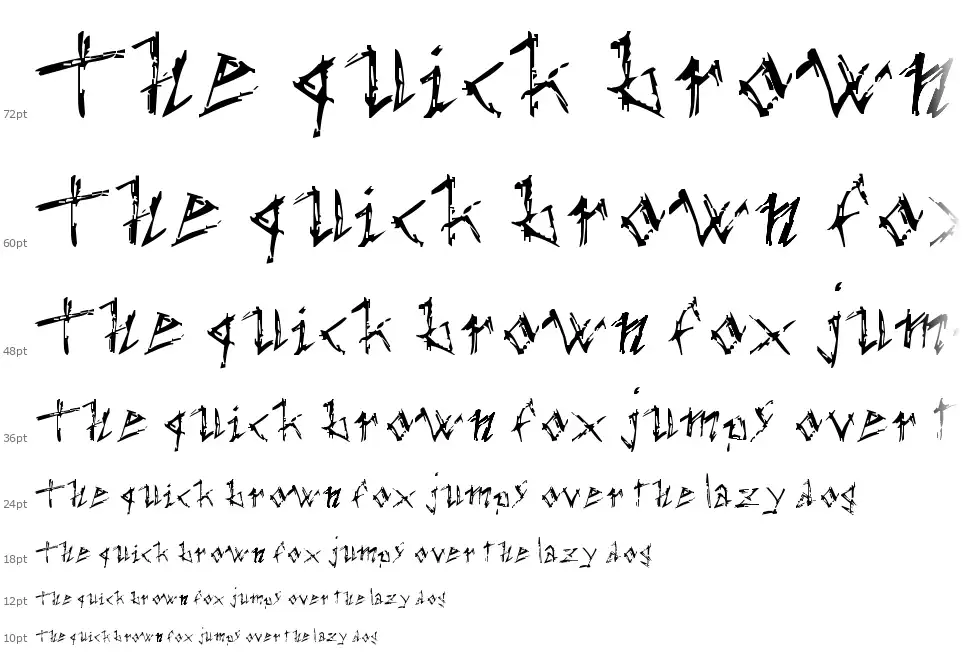 72pt the quick brown
60pt the quick brown fox
48pt the quick brown fox jum
36pt the quick brown fox jumps over t
24pt the quick brown fox jumps over the lazy dog
18pt the quick brown fox jumps over the lazy dog
12pt the quick brown fox jumps over the lazy dog
10pt the quick brown fox jumps over the lazy dog